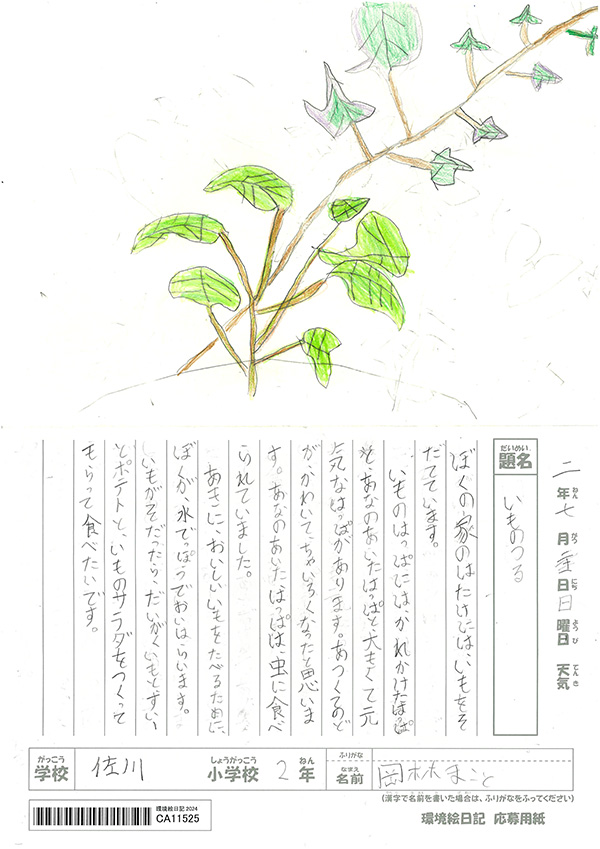 二年七月日日曜日 天気
ねん がつ にち ようび てんき
だいめい
題名
いものつる
ぼくの家のはたけには、いもをそ
だてています。
いものはっぱには、かれかけたはっぱ
と、あなのあいたはっぱと、大きくて元
気なはっぱがあります。あつくてのど
が、かわいて、ちゃいろくなったと思いま
す。あなのあいた、はっぱは、虫に食べ
られていました。
あきに、おいしいいもをたべるために、
ぼくが、水でっぽうでおいはらいます。
いもがそだったら、だいがくいもと、すい
とポテトと、いものサラダをつくって
もらって食べたいです。
がっこう しょうがっこう ねん ふりがな
学校 佐川 小学校 2年 なまえ 名前 岡林まこと
(漢字で名前を書いた場合は、ふりがなをふってください)
環境絵日記2024
CA11525
環境絵日記 応募用紙